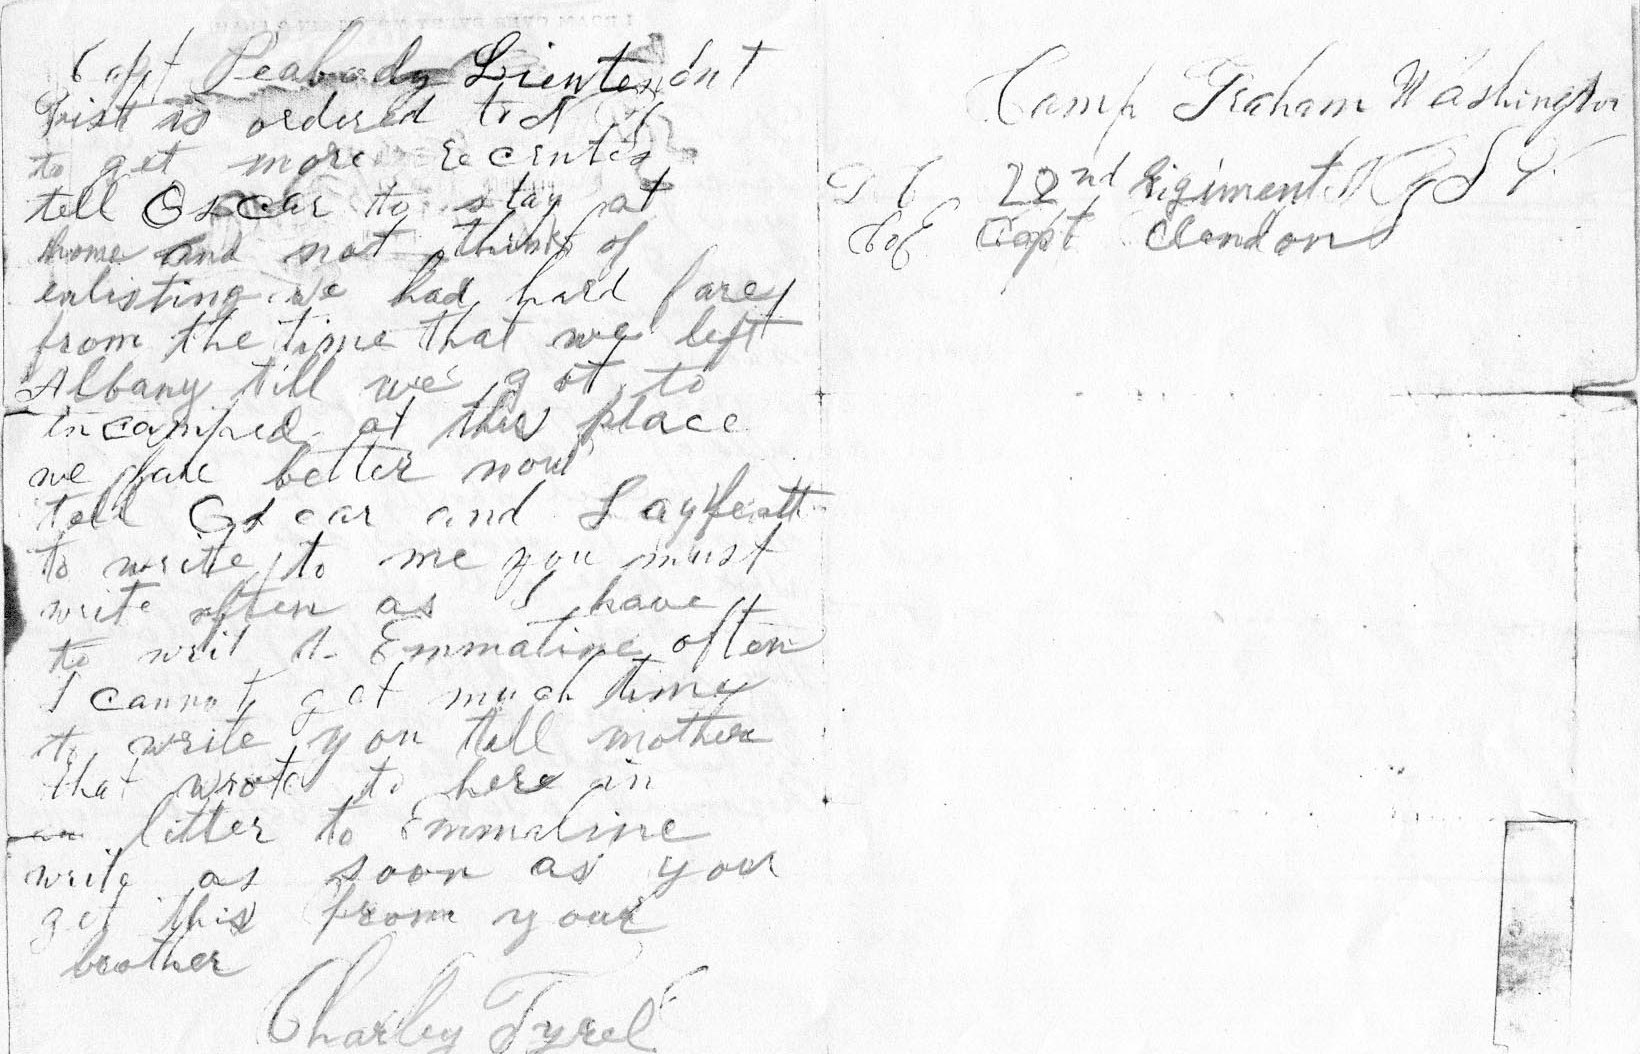 Capt Peabody Lieutenant
is ordered to N Y
to get more
tell Oscar to stay at
home and not think of
enlisting we had hard fare
from the time that we left
Albany till we got to
incamped at this place
we fare better now
tell Oscar and Layfeatt
to write to me you must
write often as I have
to writ to Emmaline often
I cannot get much time
to write you tell mother
that wrote to here in
litter to Emmaline
write as soon as you
get this from your
brother
Charley Tyrel
Camp Graham Washington
D C 22nd Rigiment N Y S V
Co E Capt Clendon